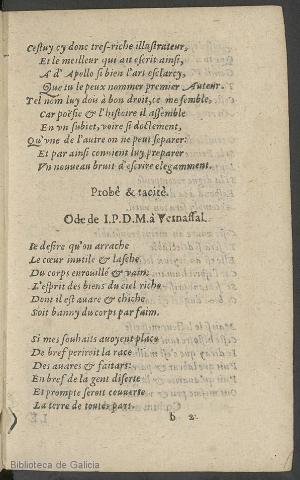 Cestuy cy donc tres-riche illustrateur,
Et le meilleur qui ait escrit ainsi,
A d'Apollo si bien l'art esclarcy,
Que tu le peux nommer premier Auteur.
Tel nom luy dois à bon droit, ce me semble,
Car poësie & l'histoire il assemble
En vn subiet, voire si doctement,
Qu'vne de l'autre on ne peut separer:
Et par ainsi conuient luy preparer
Vn nouueau bruit d'escrire elegamment.
Probè & tacitè.
Ode de I.P.D.M. à Vernassal.
Ie desire qu'on arrache
Le cœur inutile & lasche
Du corps enrouillé & vain:
L'esprit des biens du ciel riche
Dont il est auare & chiche
Soit banny du corps par faim.
Si mes souhaits auoyent place
De bref periroit la race
Des auares & faitars:
En bref de la gent diserte
Et prompte seroit couuerte
La terre de toutes pars.
b 2
Biblioteca de Galicia